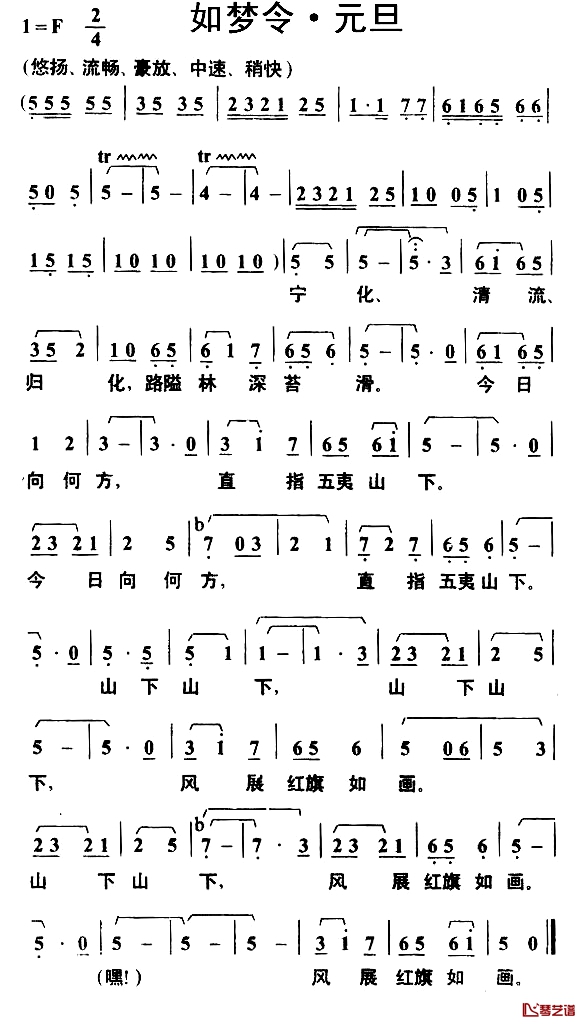 如梦令·元旦
1=F 2/4
(悠扬、流畅、豪放、中速、稍快)
(555 55 | 35 35 | 2321 25 | 1·1 77 | 6165 66 |
50 5 | tr 5 – | 5 – | tr 4 – | 4 – | 2321 25 | 10 05 | 1 05 |
15 15 | 10 10 | 10 10 ) | 5 5 | 5 – | 5·3 | 61 65 |
宁 化、 清 流、
35 2 | 10 65 | 6 1 7 | 65 6 | 5 – | 5·0 | 61 65 |
归 化, 路隘 林 深 苔 滑。 今 日
1 2 | 3 – | 3·0 | 3 1 7 | 65 61 | 5 – | 5·0 |
向 何 方, 直 指 五夷 山 下。
23 21 | 2 5 | b7 03 | 2 1 | 7 2 7 | 65 6 | 5 – |
今 日 向 何 方, 直 指 五夷 山 下。
5·0 | 5·5 | 5 1 | 1 – | 1·3 | 23 21 | 2 5 |
山 下 山 下, 山 下 山
5 – | 5·0 | 31 7 | 65 6 | 5 06 | 5 3 |
下, 风 展 红旗 如 画。
23 21 | 2 5 | b7 – | 7·3 | 23 21 | 65 6 | 5 – |
山 下 山 下, 风 展 红旗 如 画。
5·0 | 5 – | 5 – | 5 – | 31 7 | 65 61 | 5 0 ‖
(嘿!) 风 展 红旗 如 画。
琴艺谱